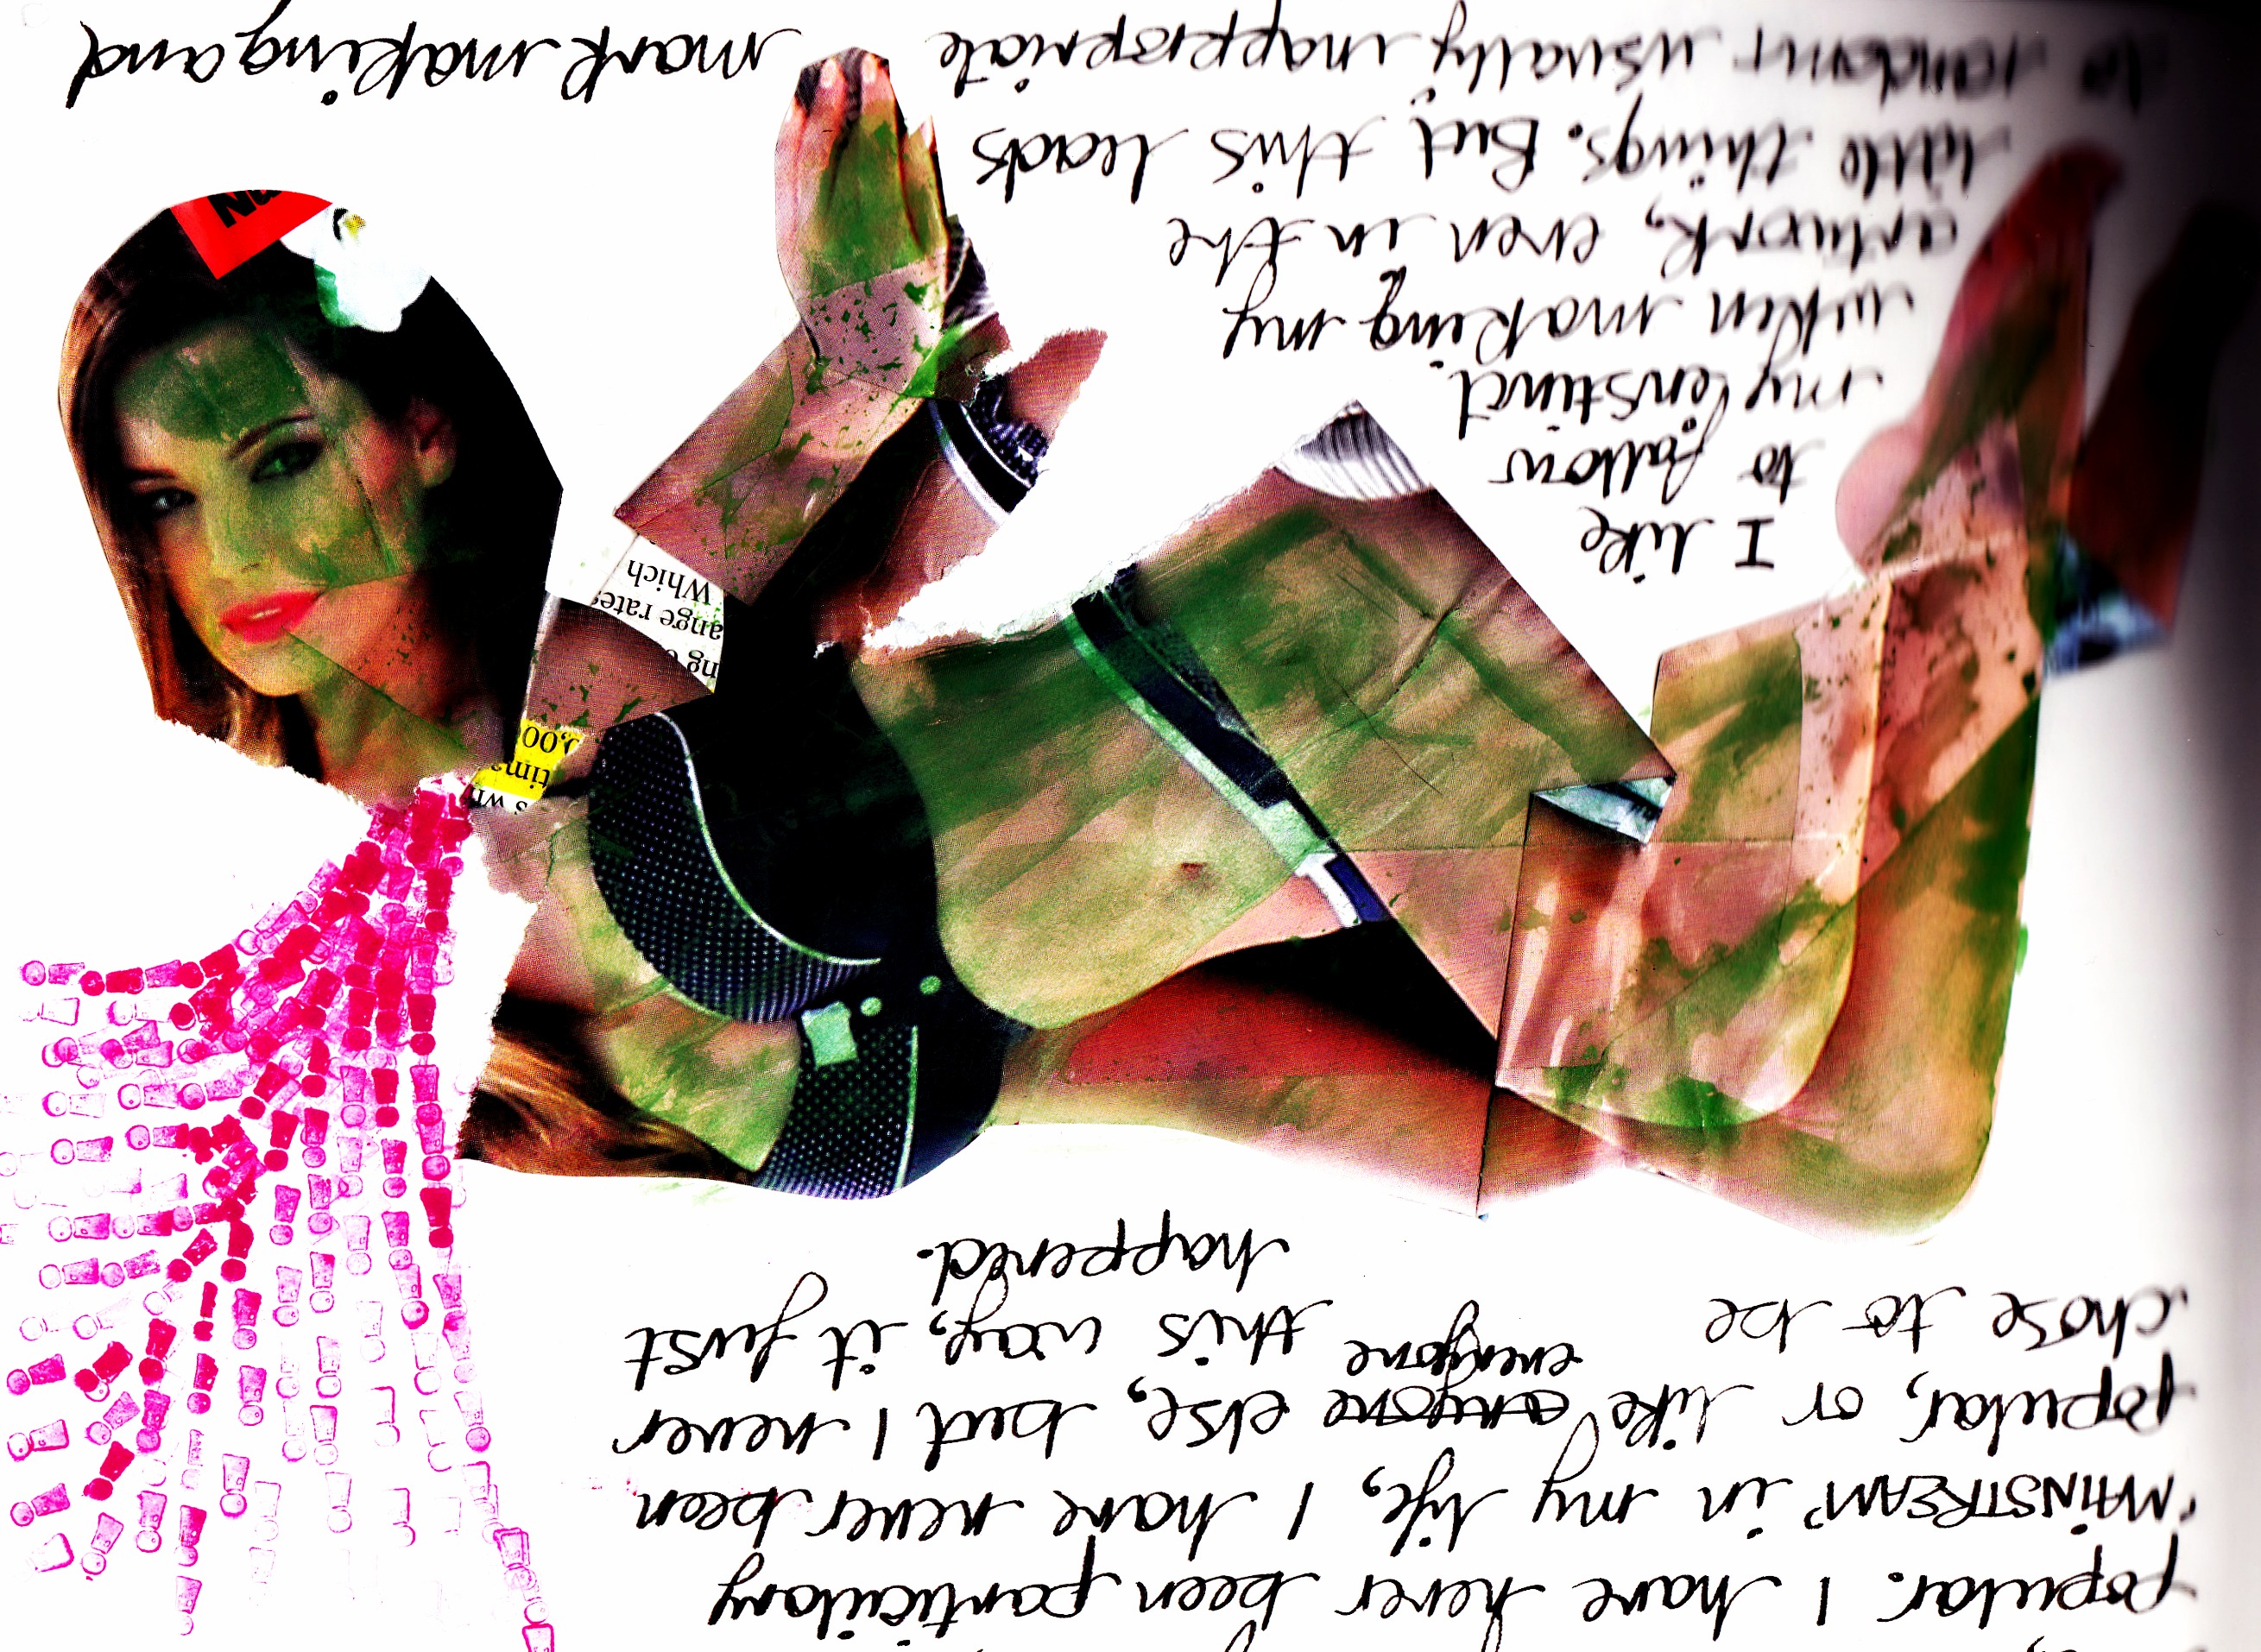 popular. I have never been particulary
'MAINSTREAM' in my life, I have never been
popular, or like anyone everyone else, but I never
chose to be this way, it just
happened.
I like
to follow
my enstinct.
when making my
artwork, even in the
little things. But this leads
to random usually inappropriate
mark making and
Which
ange rates
ng
0,00
tim